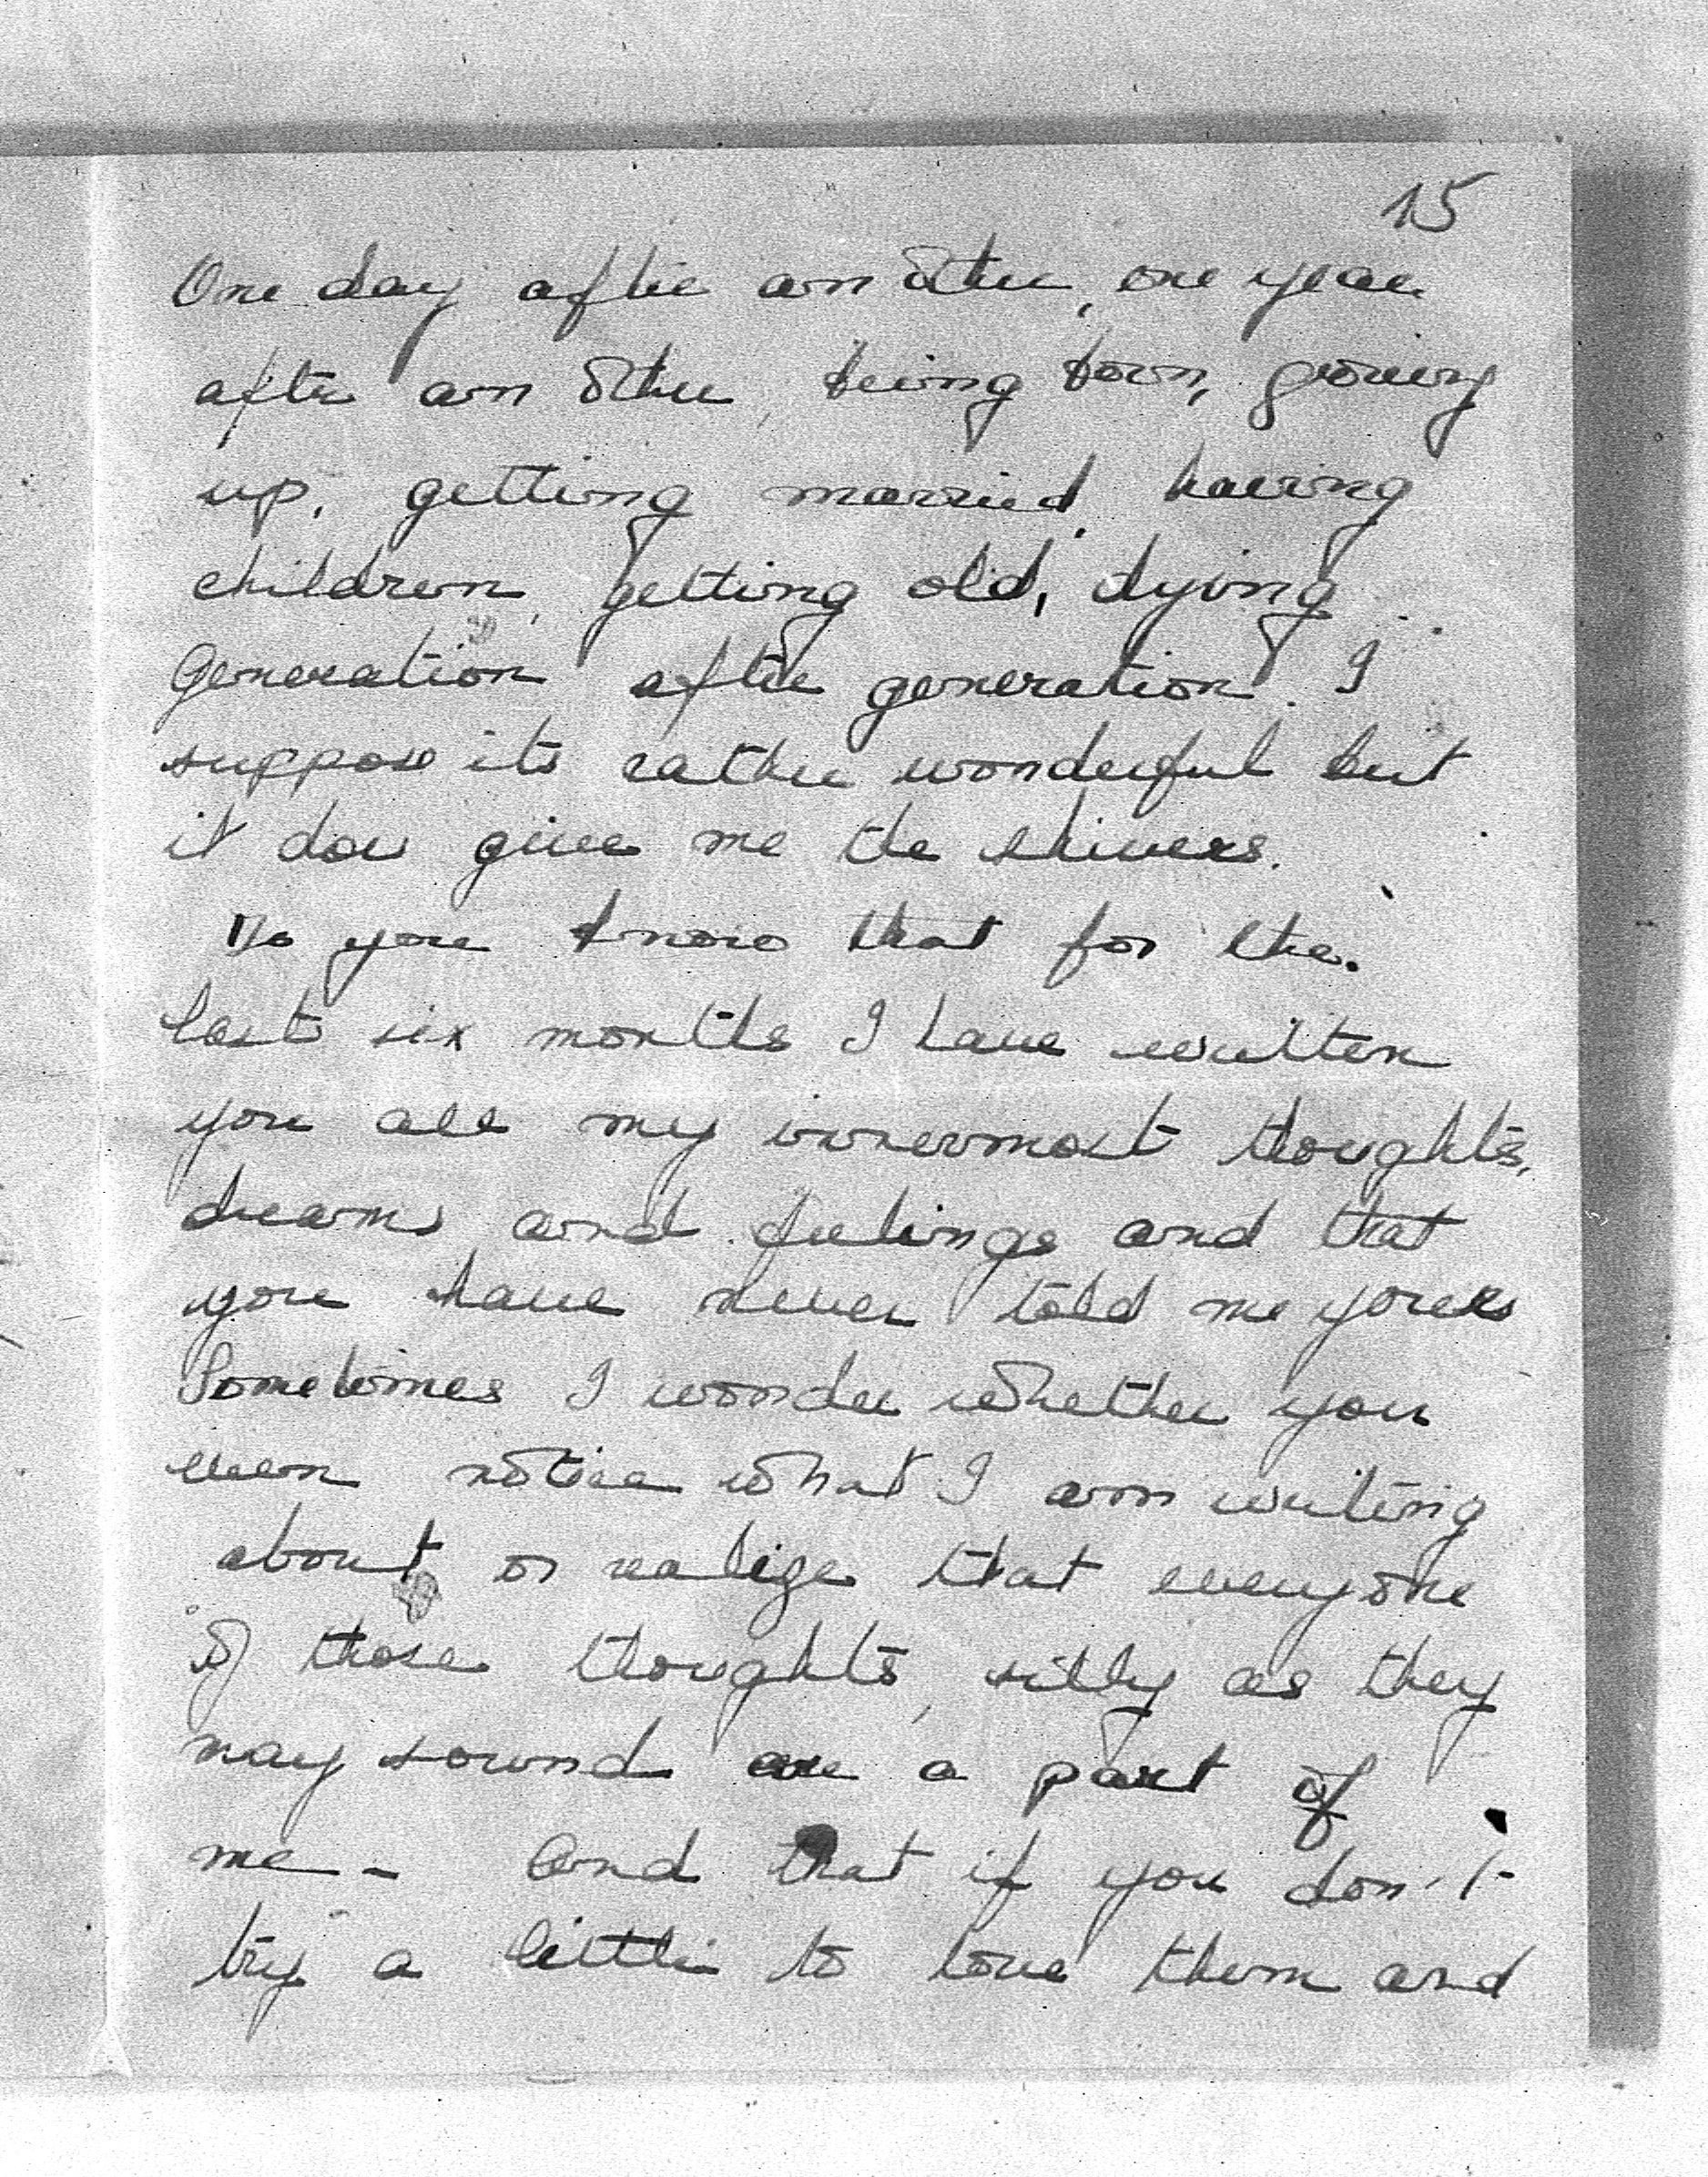 15
One day after an other, one year
after an other, being born, growing
up, getting married, having
children, getting old, dying
Generation after generation. I
suppose its rather wonderful but
it does give me the shivers.
Do you know that for the
last six months I have written
you all my innermost thoughts,
dreams and feelings and that
you have never told me yours
Sometimes I wonder whether you
even notice what I am writing
about or realize that everyone
of those thoughts, silly as they
may sound are a part of
me - And that if you don't
try a little to love them and